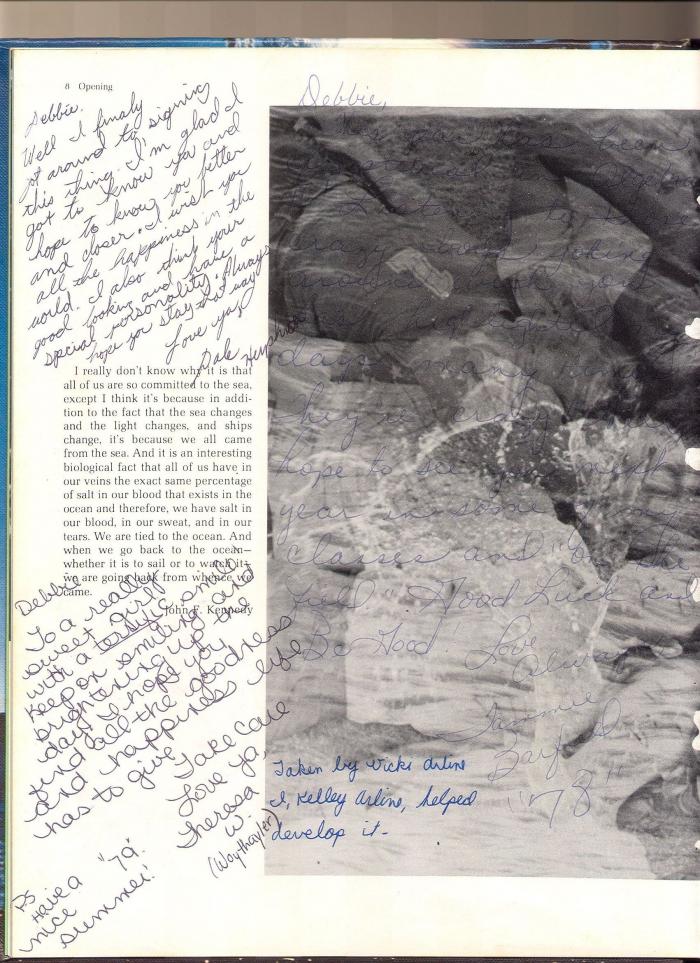 8 Opening
Debbie.
Well I finaly
got around to signing
this thing. I'm glad I
got to know ya and
hope to know you better
and closer. I wish you
all the happiness in the
world. I also think your
good looking and have a
special personality. Always
hope you stay that way
Love ya,
Dale
I really don't know why it is that
all of us are so committed to the sea,
except I think it's because in addi-
tion to the fact that the sea changes
and the light changes, and ships
change, it's because we all came
from the sea. And it is an interesting
biological fact that all of us have in
our veins the exact same percentage
of salt in our blood that exists in the
ocean and therefore, we have salt in
our blood, in our sweat, and in our
tears. We are tied to the ocean. And
when we go back to the ocean—
whether it is to sail or to watch it—
we are going back from whence we
came.
John F. Kennedy
Debbie
To a really
sweet girl
with a terrific smile
Keep on smiling and
brightening up the
day! I hope you
find all the goodness
and happiness life
has to give
Take Care
Love Ya,
Theresa
W.
(Woythaler)
PS
Have a "79".
nice
summer!
Debbie,
been
joking
around with you
days
many
They're crazy
hope to see you next
year in some of my
classes and on the
field Good Luck and
Be Good! Love
Always
Tammie
"78"
Taken by Vicki Arline
I, Kelley Arline, helped
develop it-